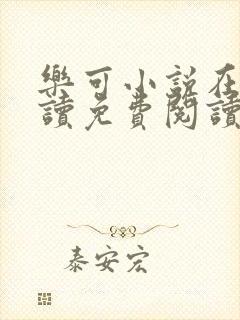 樂可小說在
讀免費閱讀
泰安宏